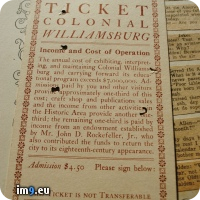 TICKET
COLONIAL
WILLIAMSBURG
Income and Cost of Operation
The annual cost of exhibiting, interpret-
ing and maintaining Colonial Williams-
burg and carrying forward its educa-
tional program exceeds $7,000,000. Ad-
paid by you and other visitors
approximately one-third of this
cost; craft shop and publications sales
and the income from other activities of
the Historic Area provide another
third; the remaining one-third is paid by
income from an endowment established
by Mr. John D. Rockefeller, Jr., who
also contributed the funds to return the
city to its eighteenth-century appearance.
Admission $4.50 Please sign below:
TICKET IS NOT TRANSFERABLE
im9.eu